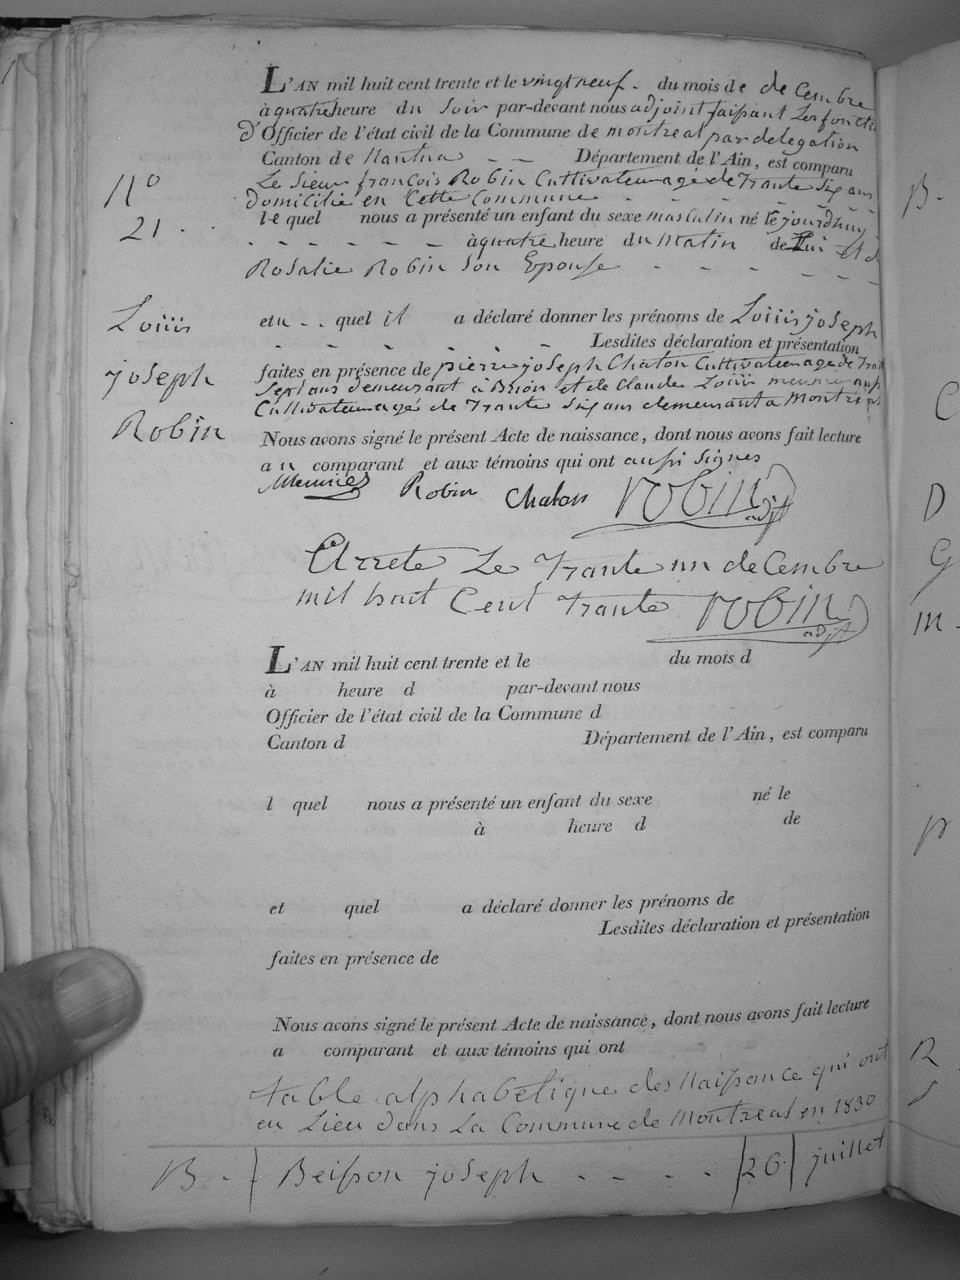 L'AN mil huit cent trente et le vingt neuf. du mois de de Cembre
à quatre heure du Soir par-devant nous adjoint faisant Les fonctio
d'Officier de l'état civil de la Commune de montreal par delegation
Canton de Nantua - - Département de l'Ain, est comparu
Le Sieur françois Robin Cultivateur agé de Trante Six ans
domicilié en Cette Commune - - - - - -
N° 21. le quel nous a présenté un enfant du sexe masculin né le jourdhuy
- - - - - - à quatre heure du matin de Lui et de
Rosalie Robin Son Epouse - - - -
Loüis joseph Robin
et u - . . quel il a déclaré donner les prénoms de Loüis joseph
- - - - - - Lesdites déclaration et présentation
faites en présence de pierre joseph Chaton Cultivateur agé de Trant
Sept ans demeurant à Brion et de Claude Loüis meunie aussi
Cultivateur agé de Trante Six ans demeurant a Montreal
Nous avons signé le présent Acte de naissance, dont nous avons fait lecture
a u comparant et aux témoins qui ont aussi Signes
Meunier Robin Chaton robin adjt
Arrete Le Trante un de Cembre
mil huit Cent Trante robin adjt
L'AN mil huit cent trente et le du mois d
à heure d par-devant nous
Officier de l'état civil de la Commune d
Canton d Département de l'Ain, est comparu
l quel nous a présenté un enfant du sexe né le
à heure d de
et quel a déclaré donner les prénoms de
Lesdites déclaration et présentation
faites en présence de
Nous avons signé le présent Acte de naissance, dont nous avons fait lecture
a comparant et aux témoins qui ont
table alphabétique des Naissance qui ont
eu Lieu dans La Commune de Montreal en 1830
B - . Beisson joseph - - - - 26 juillet
B -
C
D
G
m -
R
S